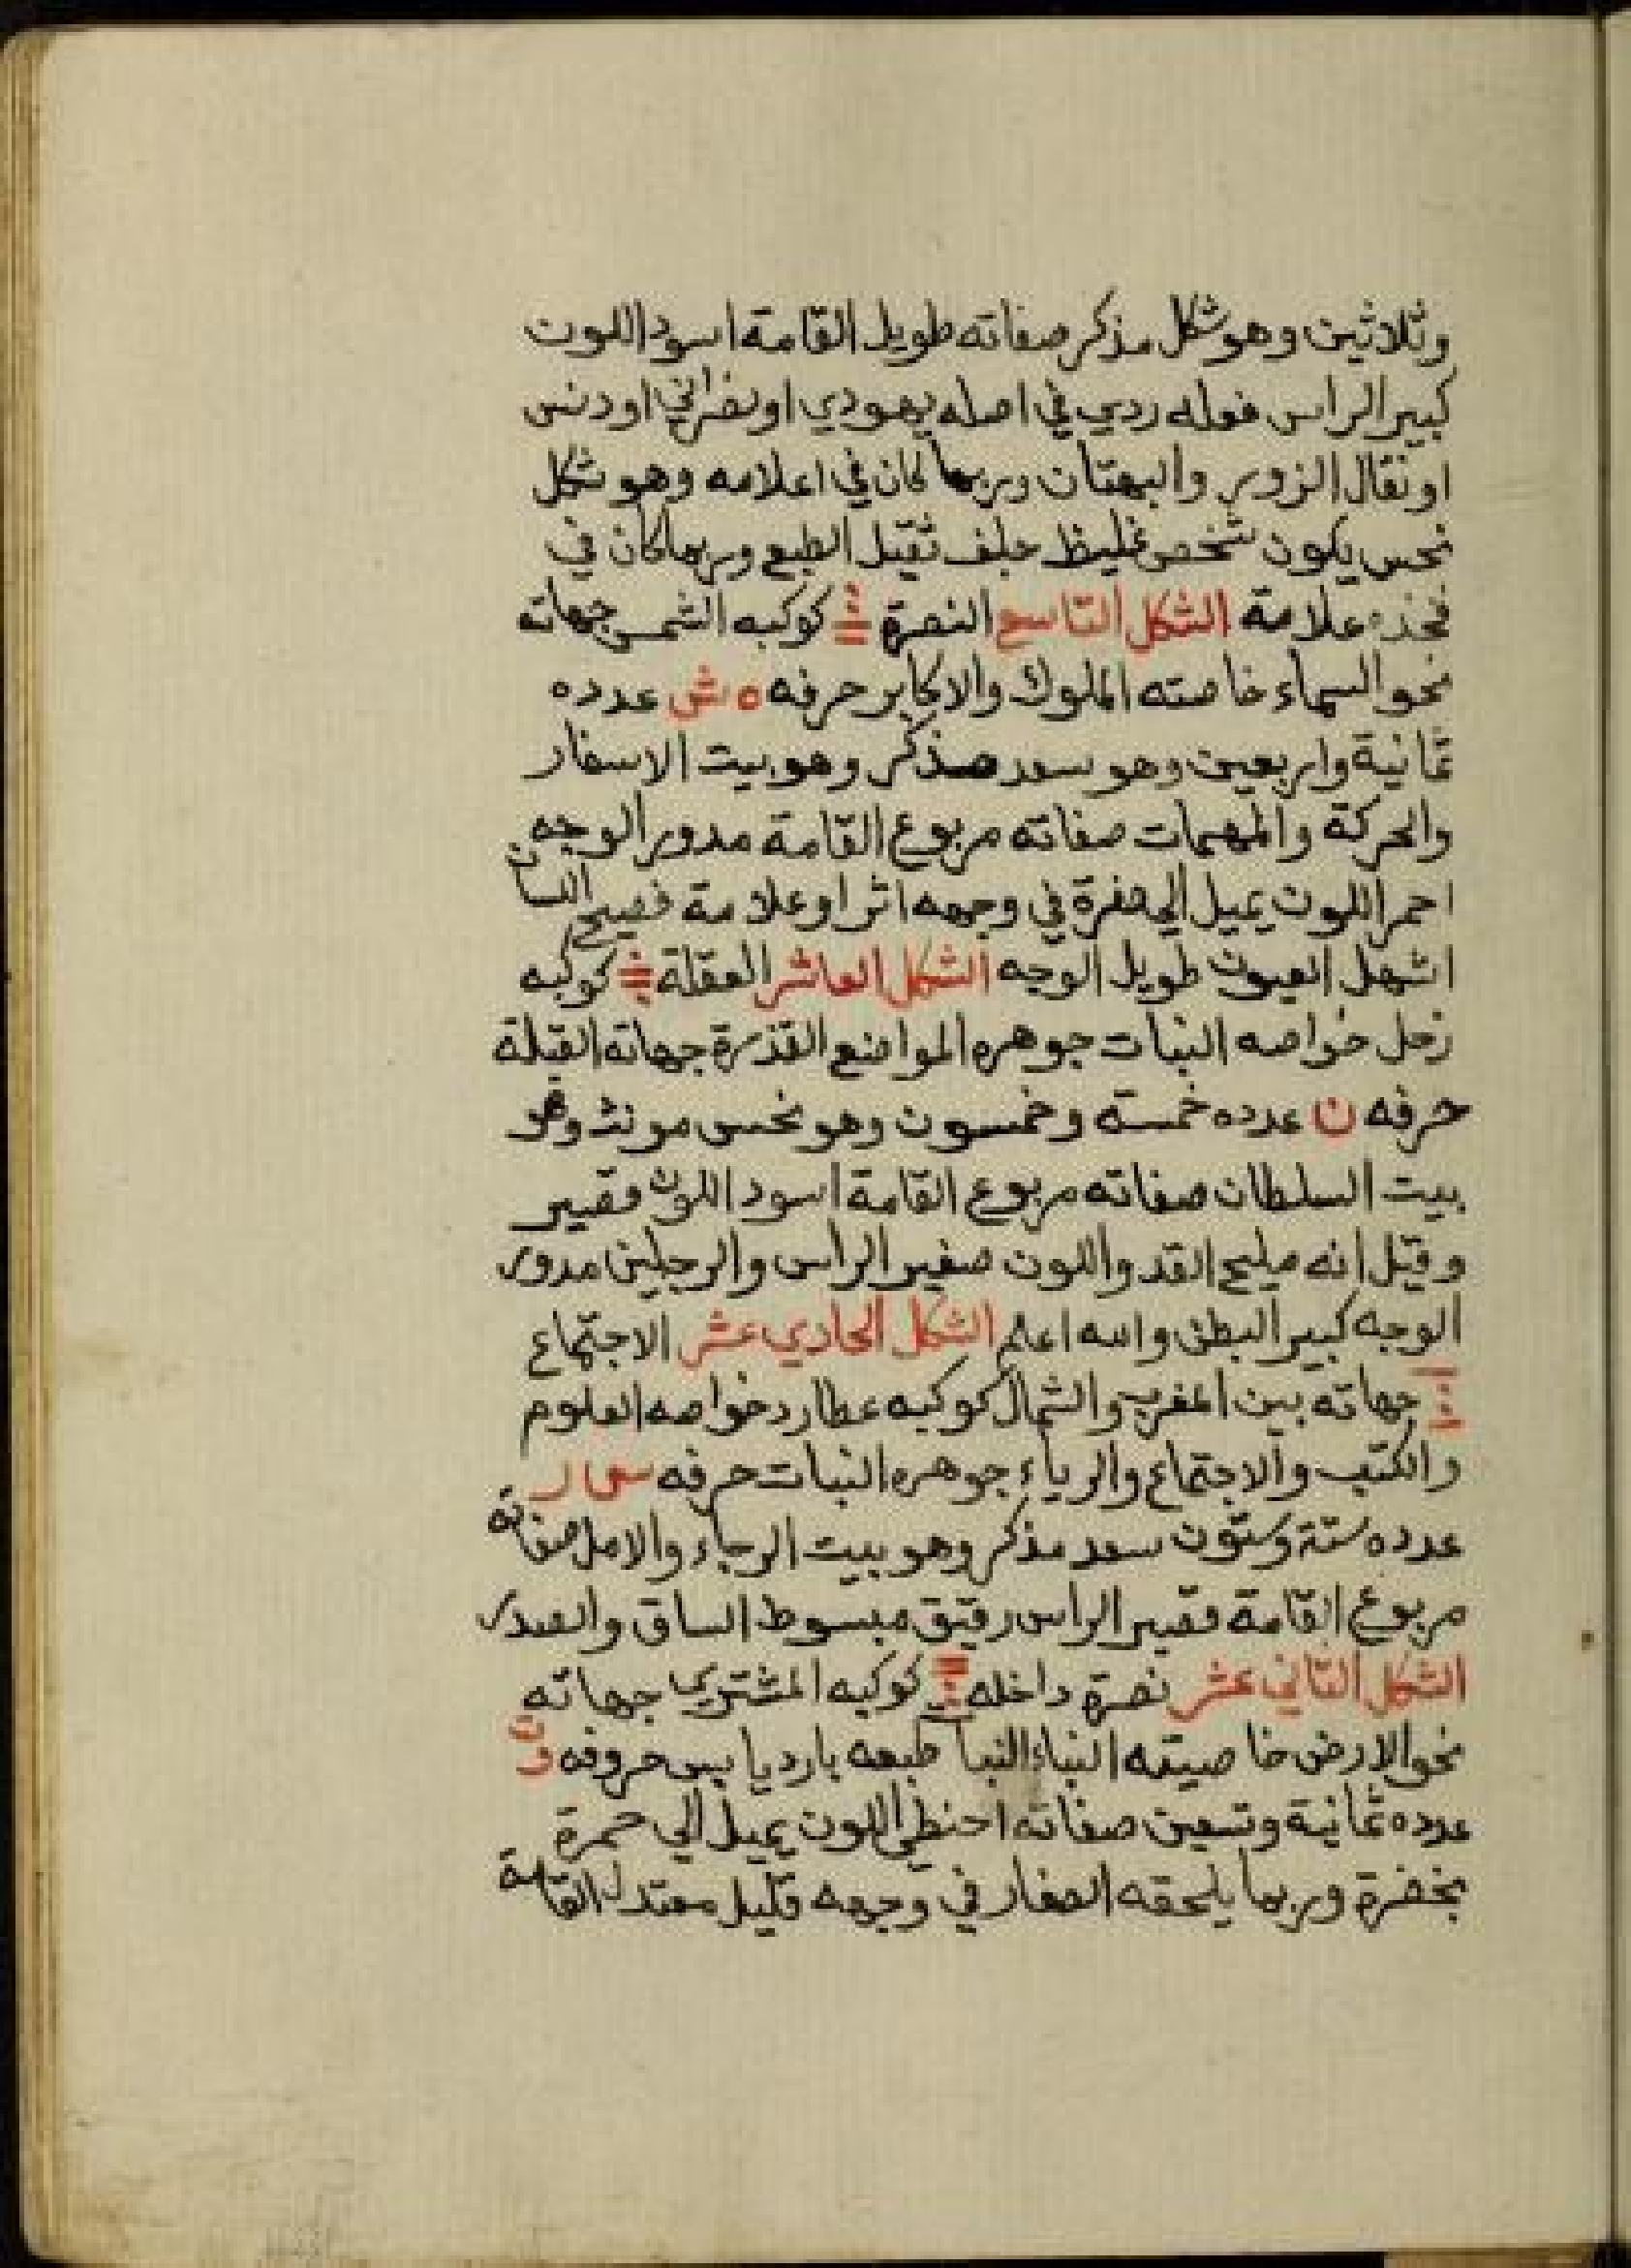 وثلاثين وهو شكل مذكر صفاته طويل القامة اسود اللون
كبير الراس فعله ردي في اصله يهودي او نصراني او دنس
او نقال الزور والبهتان وربما كان في اعلامه وهو شكل
نحس يكون شخص غليظ جلف ثقيل الطبع وربما كان في
فخذه علامة الشكل التاسع النصرة كوكبه الشمس جهاته
نحو السماء خاصته الملوك والاكابر حرفه ه ش عدده
ثمانية واربعين وهو سعد مذكر وهو بيت الاسفار
والحركة والمهمات صفاته مربوع القامة مدور الوجه
احمر اللون يميل الي صفرة في وجهه اثر او علامة فصيح اللسان
اشهل العيون طويل الوجه الشكل العاشر العقلة كوكبه
زحل خواصه النبات جوهره المواضع القذرة جهاته القبلة
حرفه ن عدده خمسة وخمسون وهو نحس مونث وهو
بيت السلطان صفاته مربوع القامة اسود اللون فقير
وقيل انه مليح القد واللون صغير الراس والرجلين مدور
الوجه كبير البطن والله اعلم الشكل الحادي عشر الاجتماع
جهاته بين المغرب والشمال كوكبه عطارد خواصه العلوم
والكتب والاجتماع والرياء جوهره النبات حرفه س
عدده ستة وستون سعد مذكر وهو بيت الرجاء والامل صفاته
مربوع القامة قصير الراس رقيق مبسوط الساق والصدر
الشكل الثاني عشر نصرة داخله كوكبه المشتري جهاته
نحو الارض خاصيته النبات طبعه بارد يابس حروفه
عدده ثمانية وتسعين صفاته احنطي اللون يميل الي حمرة
بخضرة وربما يلحقه الصفار في وجهه قليل معتدل القامة